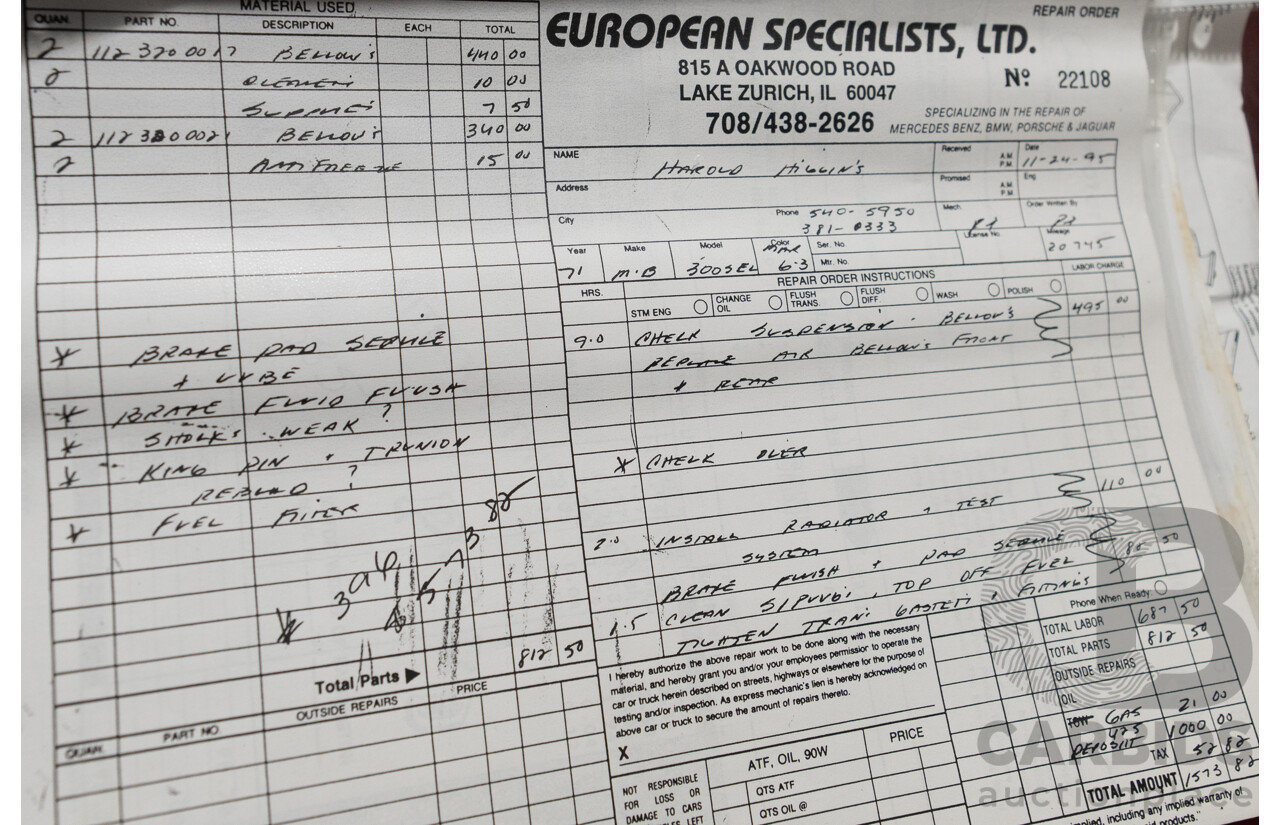 MATERIAL USED
QUAN. PART NO. DESCRIPTION EACH TOTAL
2 112 320 00 17 BELLOW'S 440 00
2 10 00
7 50
2 112 320 0021 BELLOW'S 340 00
2 ANTI FREEZE 15 00
* BRAKE PAD SERVICE
+ LUBE
* BRAKE FLUID FLUSH
* SHOCKS WEAK ?
* KING PIN + TRUNION
REBUILD ?
* FUEL FILTER
1573 82
812 50
Total Parts ▶
OUTSIDE REPAIRS PRICE
QUAN. PART NO.
REPAIR ORDER
EUROPEAN SPECIALISTS, LTD.
815 A OAKWOOD ROAD
LAKE ZURICH, IL 60047
708/438-2626
Nº 22108
SPECIALIZING IN THE REPAIR OF
MERCEDES BENZ, BMW, PORSCHE & JAGUAR
NAME HAROLD HIGGIN'S Received A.M. P.M. Date 11-24-95
Address Promised A.M. P.M. Eng
City Phone 540-5950 Mech. Order Written By
381-0333 License No. Mileage 20745
Year 71 Make M.B Model 300SEL Color 6.3 Ser. No.
Mtr. No.
HRS. REPAIR ORDER INSTRUCTIONS LABOR CHARGE
STM ENG CHANGE OIL FLUSH TRANS. FLUSH DIFF. WASH POLISH
9.0 CHECK SUSPENSION. BELLOW'S 495 00
REPLACE AIR BELLOW'S FRONT
+ REAR
* CHECK OVER
110 00
2.0 INSTALL RADIATOR + TEST
SYSTEM
BRAKE FLUSH + PAD SERVICE
1.5 CLEAN, TOP OFF FUEL 50
TIGHTEN TRANS, FITTINGS
I hereby authorize the above repair work to be done along with the necessary
material, and hereby grant you and/or your employees permission to operate the
car or truck herein described on streets, highways or elsewhere for the purpose of
testing and/or inspection. As express mechanic's lien is hereby acknowledged on
above car or truck to secure the amount of repairs thereto.
X
Phone When Ready:
TOTAL LABOR 687 50
TOTAL PARTS 812 50
OUTSIDE REPAIRS
OIL
TOW GAS 21 00
DEPOSIT 1000 00
TAX 52 82
TOTAL AMOUNT 1573 82
NOT RESPONSIBLE
FOR LOSS OR
DAMAGE TO CARS
LEFT
ATF, OIL, 90W PRICE
QTS ATF
QTS OIL @
including any implied warranty of
products."
CARBIDS
auctionplace